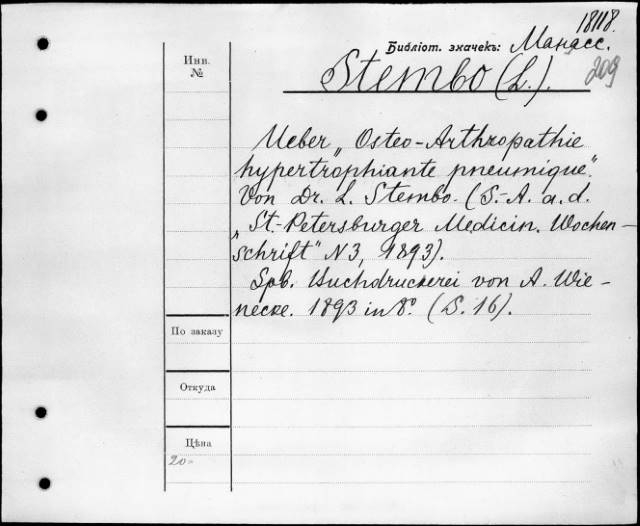 18118.
Библіот. значекъ: Манасс.
209
Инв.
№
Stembo (L.).
Ueber „Osteo-Arthropathie
hypertrophiante pneumique".
Von Dr. L. Stembo. (S.-A. a. d.
„St.-Petersburger Medicin. Wochen-
schrift" N 3, 1893).
Spb. Buchdruckerei von A. Wie-
necke. 1893 in 8º. (S. 16).
По заказу
Откуда
Цѣна
20-